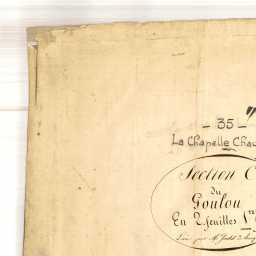 - 35 -
La Chapelle Chau
Section C
du
Goulou
En 2 feuilles 1re
Levé par Mr